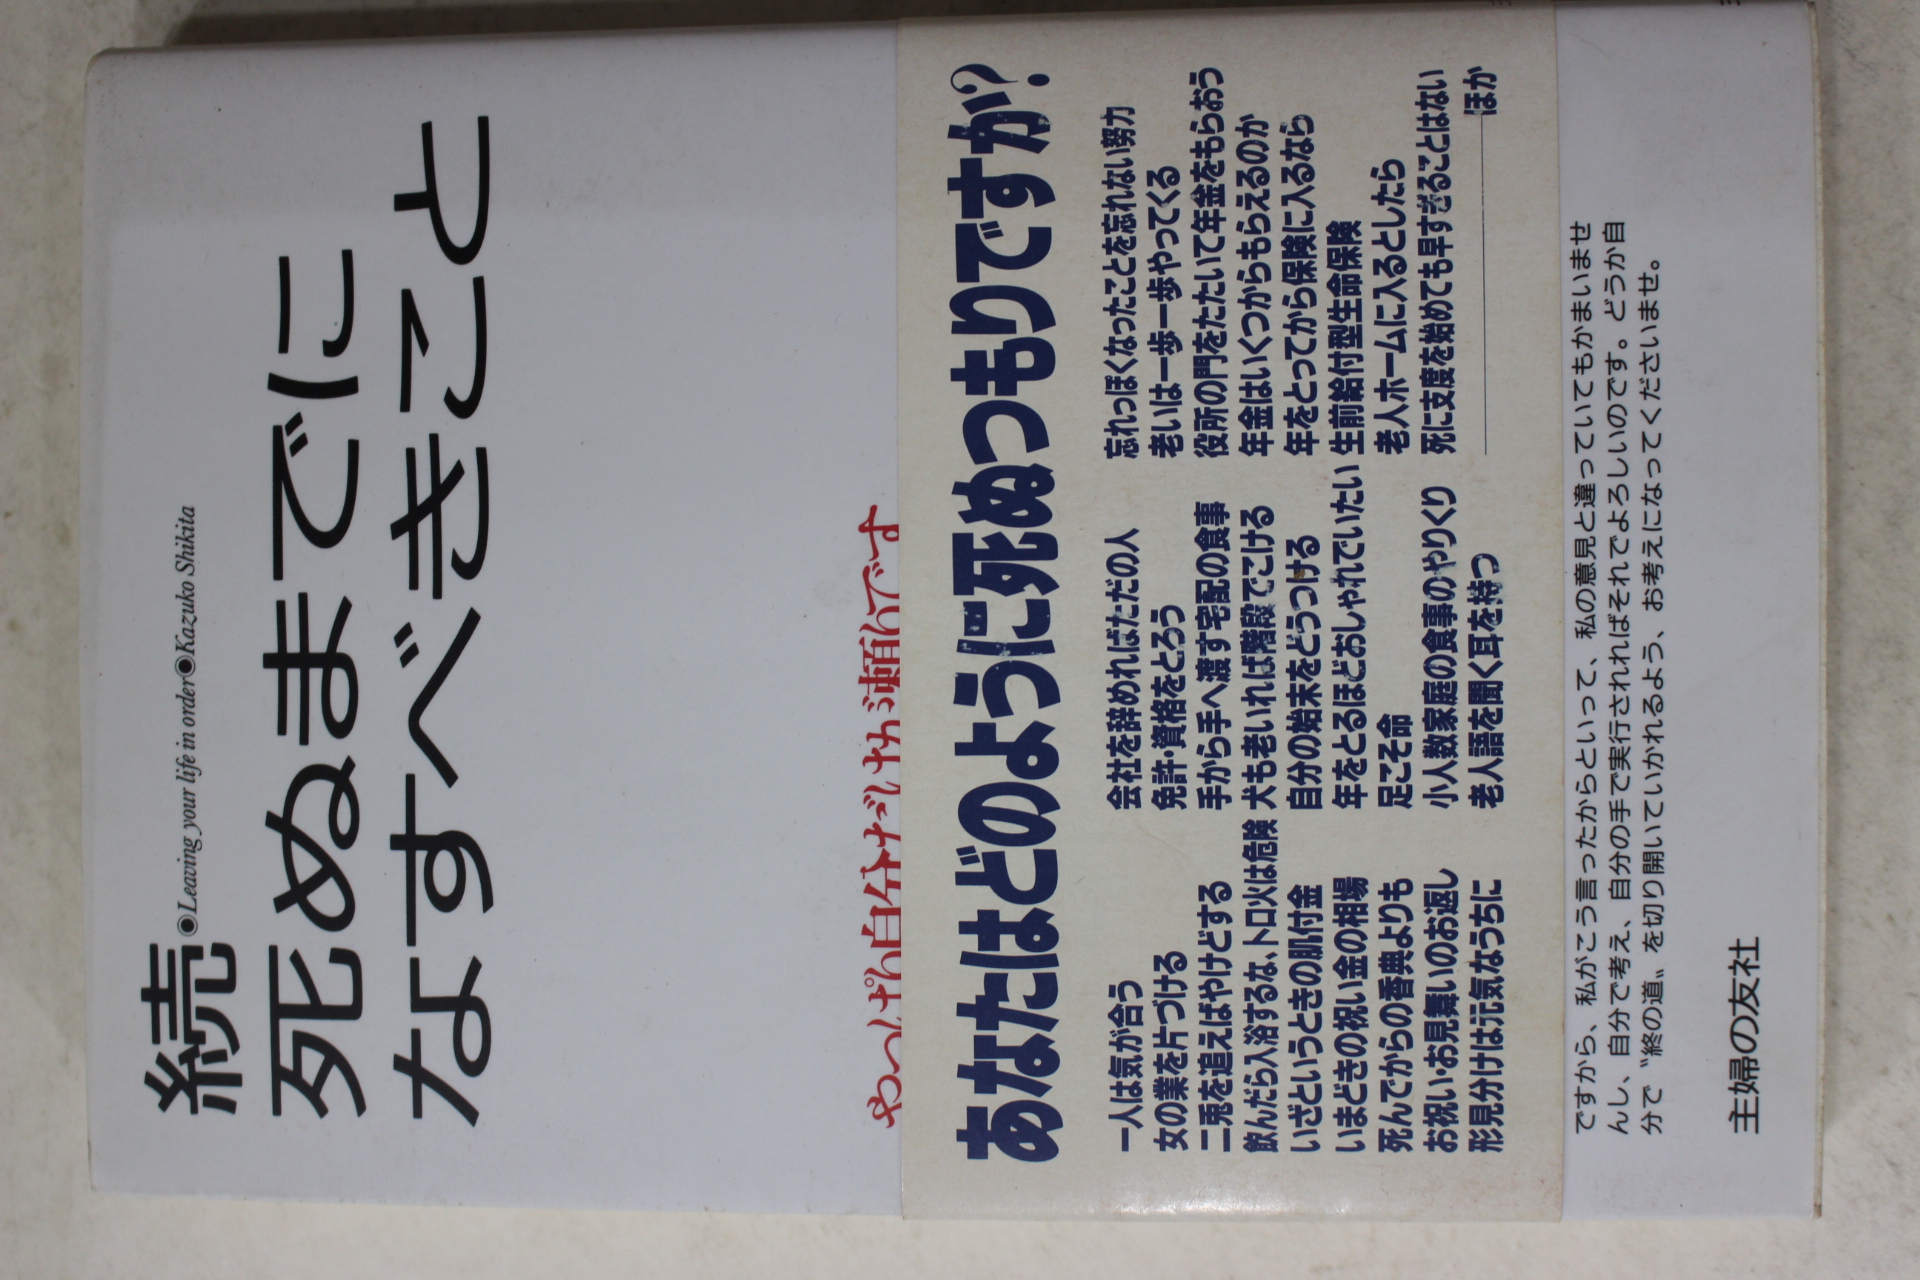 続
◉Leaving your life in order◉Kazuko Shikita
死ぬまでに
なすべきこと
やっぱり自分だけが頼りです
あなたはどのように死ぬつもりですか?
一人は気が合う
女の業を片づける
二兎を追えばやけどする
飲んだら入浴するな、トロ火は危険
いざというときの肌付金
いまどきの祝い金の相場
死んでからの香典よりも
お祝い・お見舞いのお返し
形見分けは元気なうちに
会社を辞めればただの人
免許・資格をとろう
手から手へ渡す宅配の食事
犬も老いれば階段でこける
自分の始末をどうつける
年をとるほどおしゃれでいたい
足こそ命
小人数家庭の食事のやりくり
老人語を聞く耳を持つ
忘れっぽくなったことを忘れない努力
老いは一歩一歩やってくる
役所の門をたたいて年金をもらおう
年金はいくつからもらえるのか
年をとってから保険に入るなら
生前給付型生命保険
老人ホームに入るとしたら
死に支度を始めても早すぎることはない
ほか
ですから、私がこう言ったからといって、私の意見と違っていてもかまいませ
んし、自分で考え、自分の手で実行されればそれでよろしいのです。どうか自
分で〝終の道〟を切り開いていかれるよう、お考えになってくださいませ。
主婦の友社